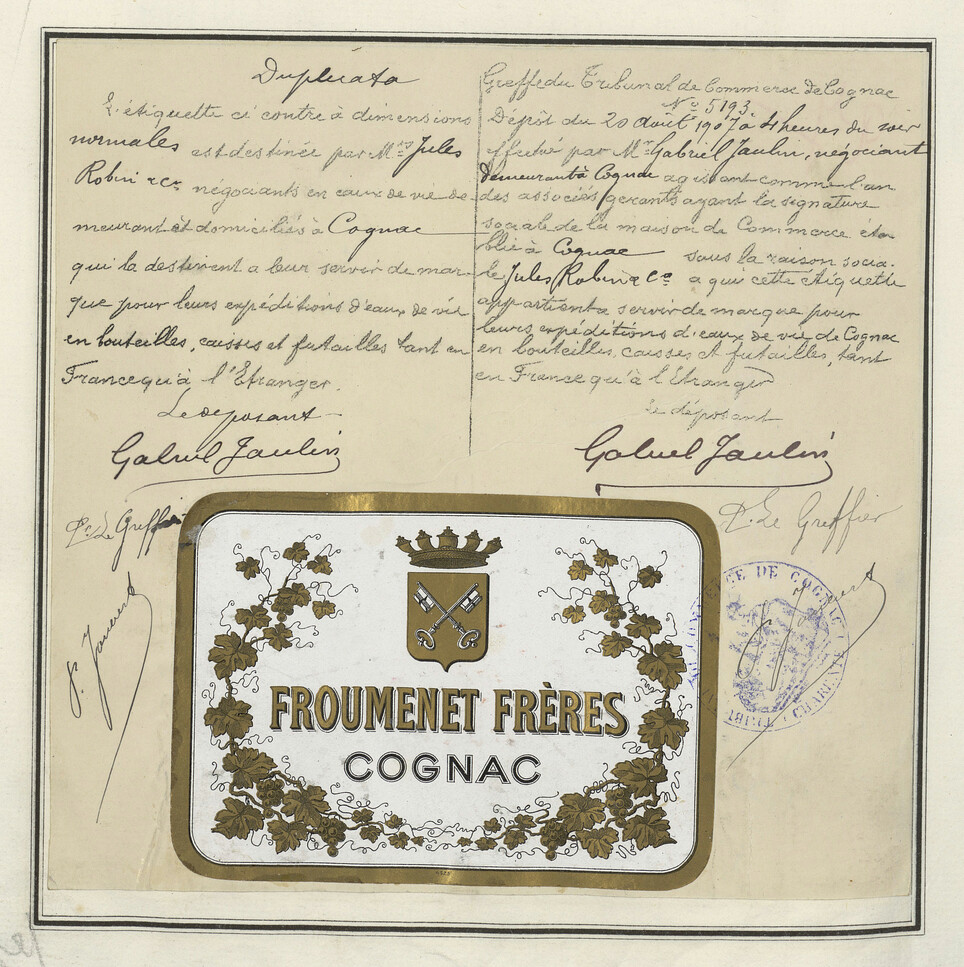 Duplicata
L'étiquette ci contre à dimensions
normales est destinée par Mrs Jules
Robin & Co. négociants en eaux de vie de-
meurant et domiciliés à Cognac
qui la destinent a leur servir de mar-
que pour leurs expéditions d'eaux de vie
en bouteilles, caisses et futailles tant en
France qu'à l'Etranger.
Le déposant
Gabriel Jaulin
Pr. Le Greffier
Greffe du Tribunal de Commerce de Cognac
No 5193
Dépôt du 20 août 1907 à 4 heures du soir
effectué par Mr Gabriel Jaulin, négociant
demeurant à Cognac agissant comme l'un
des associés gérants ayant la signature
sociale de la maison de Commerce éta-
blie à Cognac sous la raison socia-
le Jules Robin & Co a qui cette étiquette
appartient a servir de marque pour
leurs expéditions d'eaux de vie de Cognac
en bouteilles, caisses et futailles, tant
en France qu'à l'Etranger
Le déposant
Gabriel Jaulin
Pr. Le Greffier
FROUMENET FRÈRES
COGNAC
DE COGNAC
TRIBU
CHARENTE